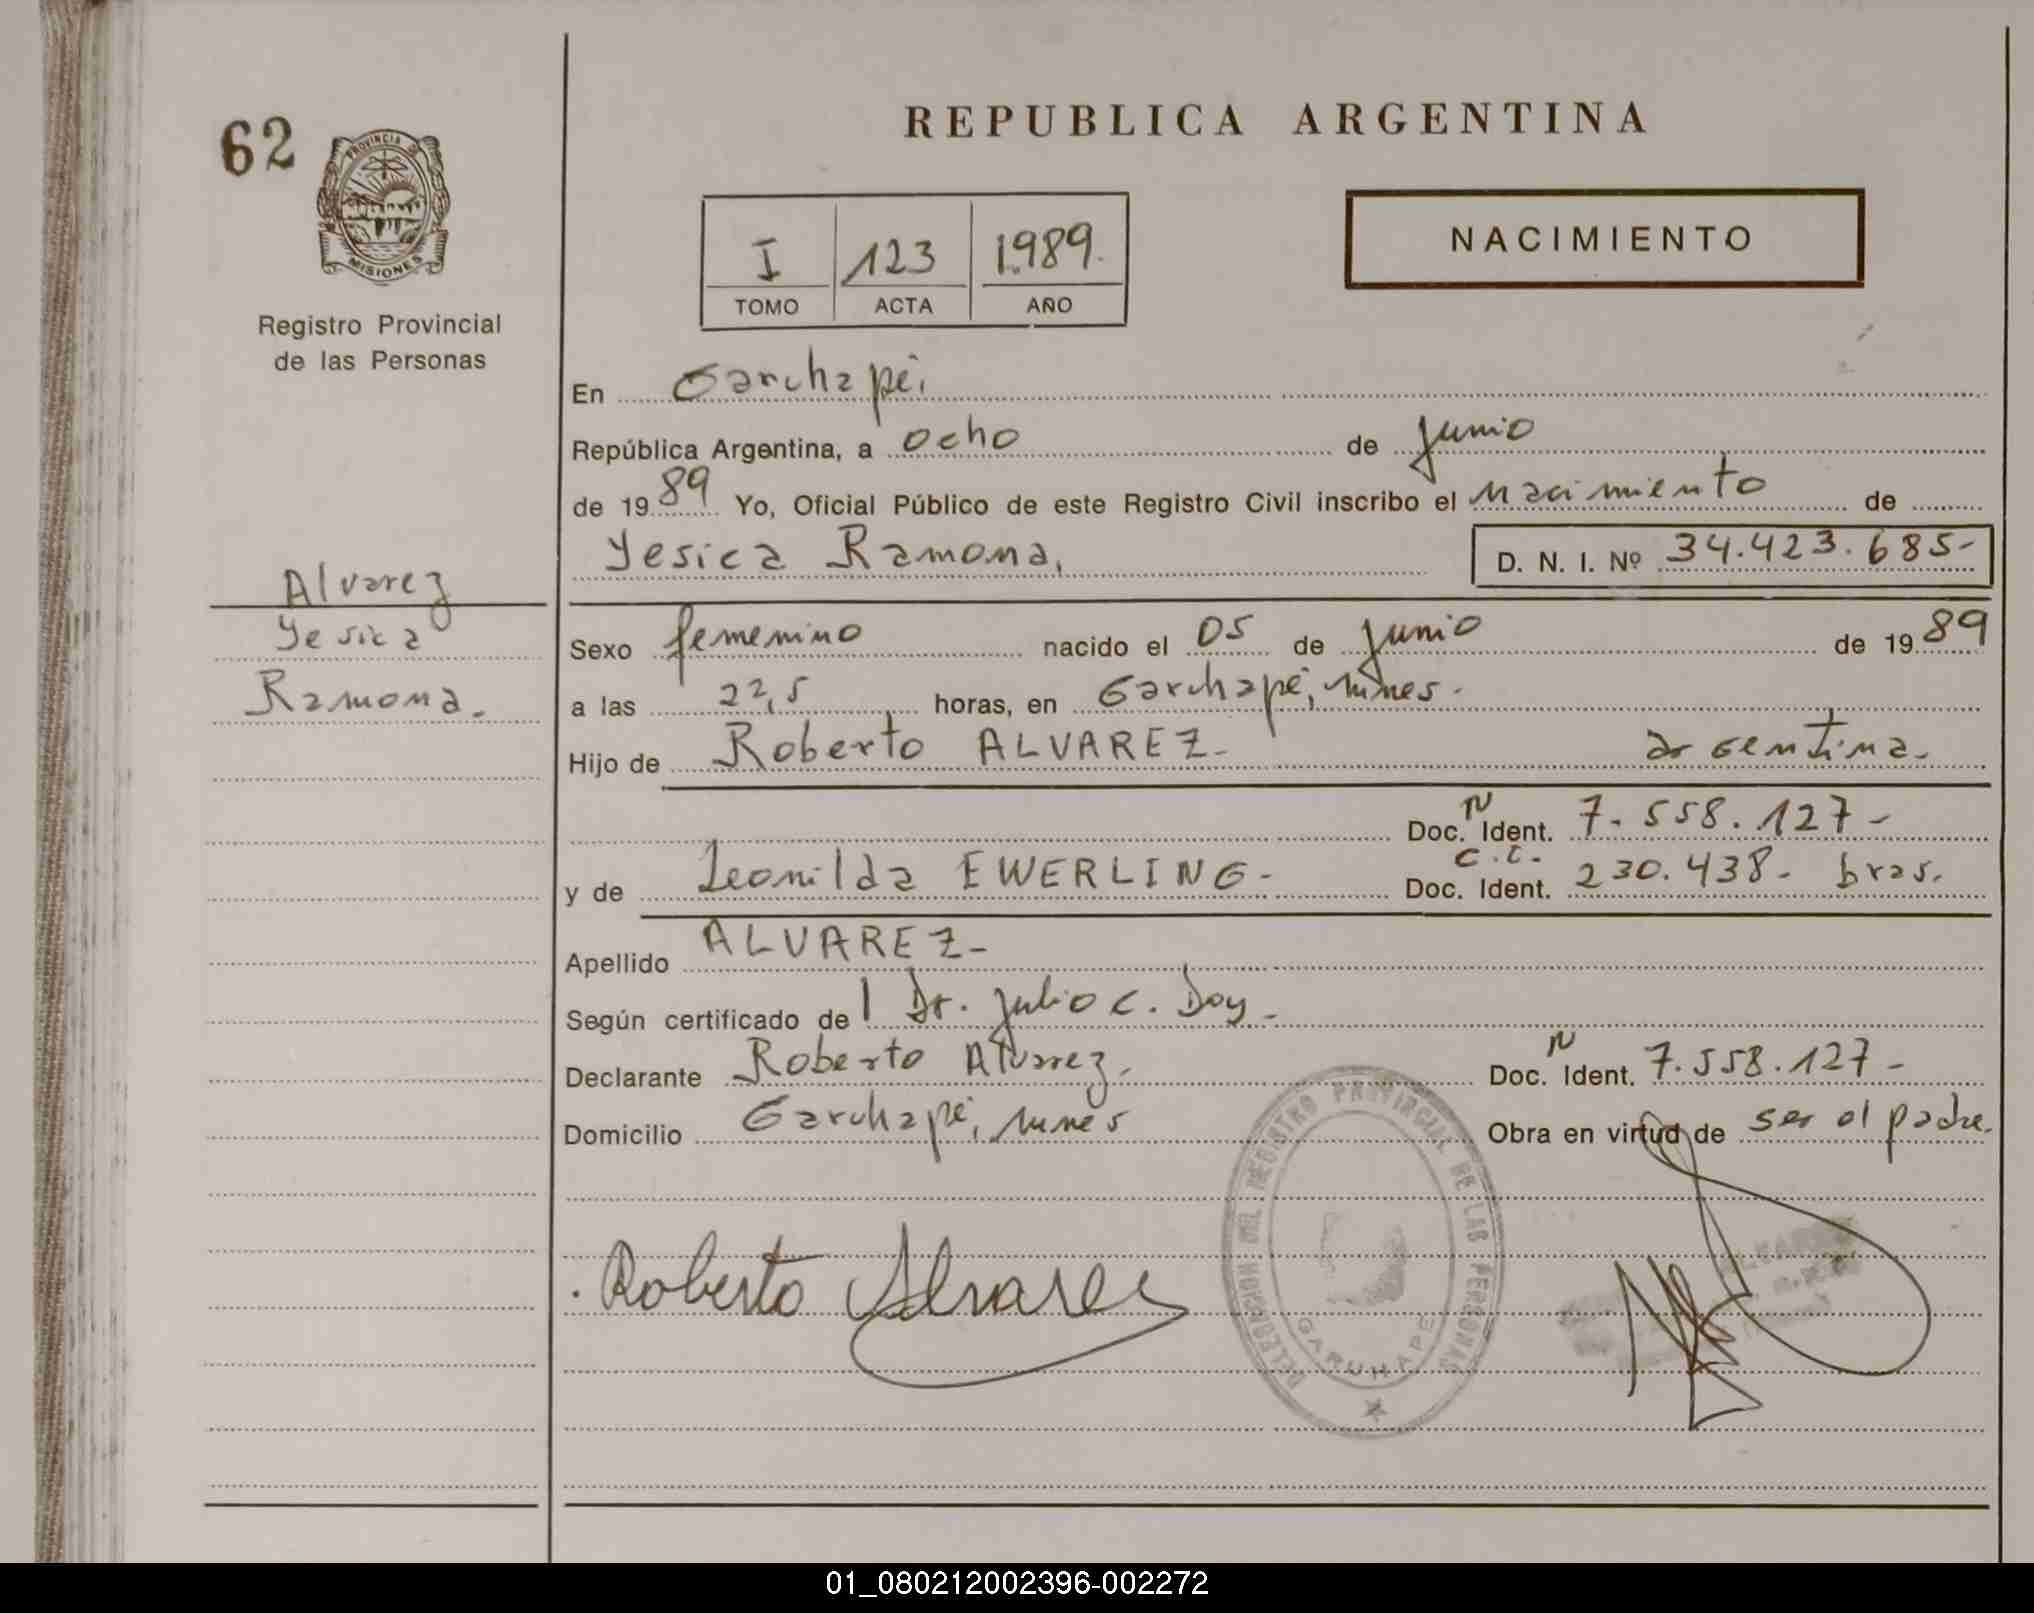 62
PROVINCIA DE
MISIONES
Registro Provincial
de las Personas
Alvarez
Yesica
Ramona.
REPUBLICA ARGENTINA
I 123 1.989.
TOMO ACTA AÑO
NACIMIENTO
En Garuhapé,
República Argentina, a ocho de junio
de 19 89 Yo, Oficial Público de este Registro Civil inscribo el nacimiento de
Yesica Ramona, D. N. I. Nº 34.423.685-
Sexo femenino nacido el 05 de junio de 19 89
a las 22,5 horas, en Garuhapé, mnes.
Hijo de Roberto ALVAREZ- argentina.
N
Doc. Ident. 7.558.127-
C.I.
y de Leonilda EWERLING- Doc. Ident. 230.438- bras.
Apellido ALVAREZ-
Según certificado de l Dr. Julio C. Doy-
N
Declarante Roberto Alvarez. Doc. Ident. 7.558.127-
Domicilio Garuhapé, mnes Obra en virtud de ser el padre.
Roberto Alvarez
DELEGACION DEL REGISTRO PROVINCIAL DE LAS PERSONAS
GARUHAPE
01_080212002396-002272